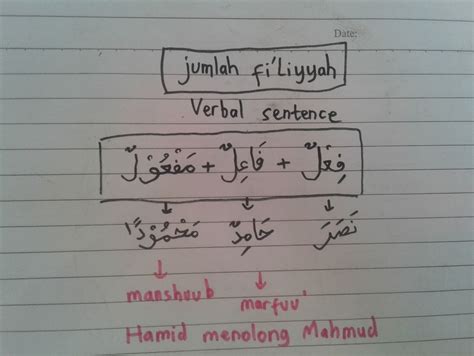 Date:
jumlah fi'liyyah
Verbal sentence
فِعْلٌ + فَاعِلٌ + مَفْعُوْلٌ
↓ ↓ ↓
نَصَرَ حَامِدٌ مَحْمُوْدًا
↓ ↓
manshuub marfuu'
Hamid menolong Mahmud